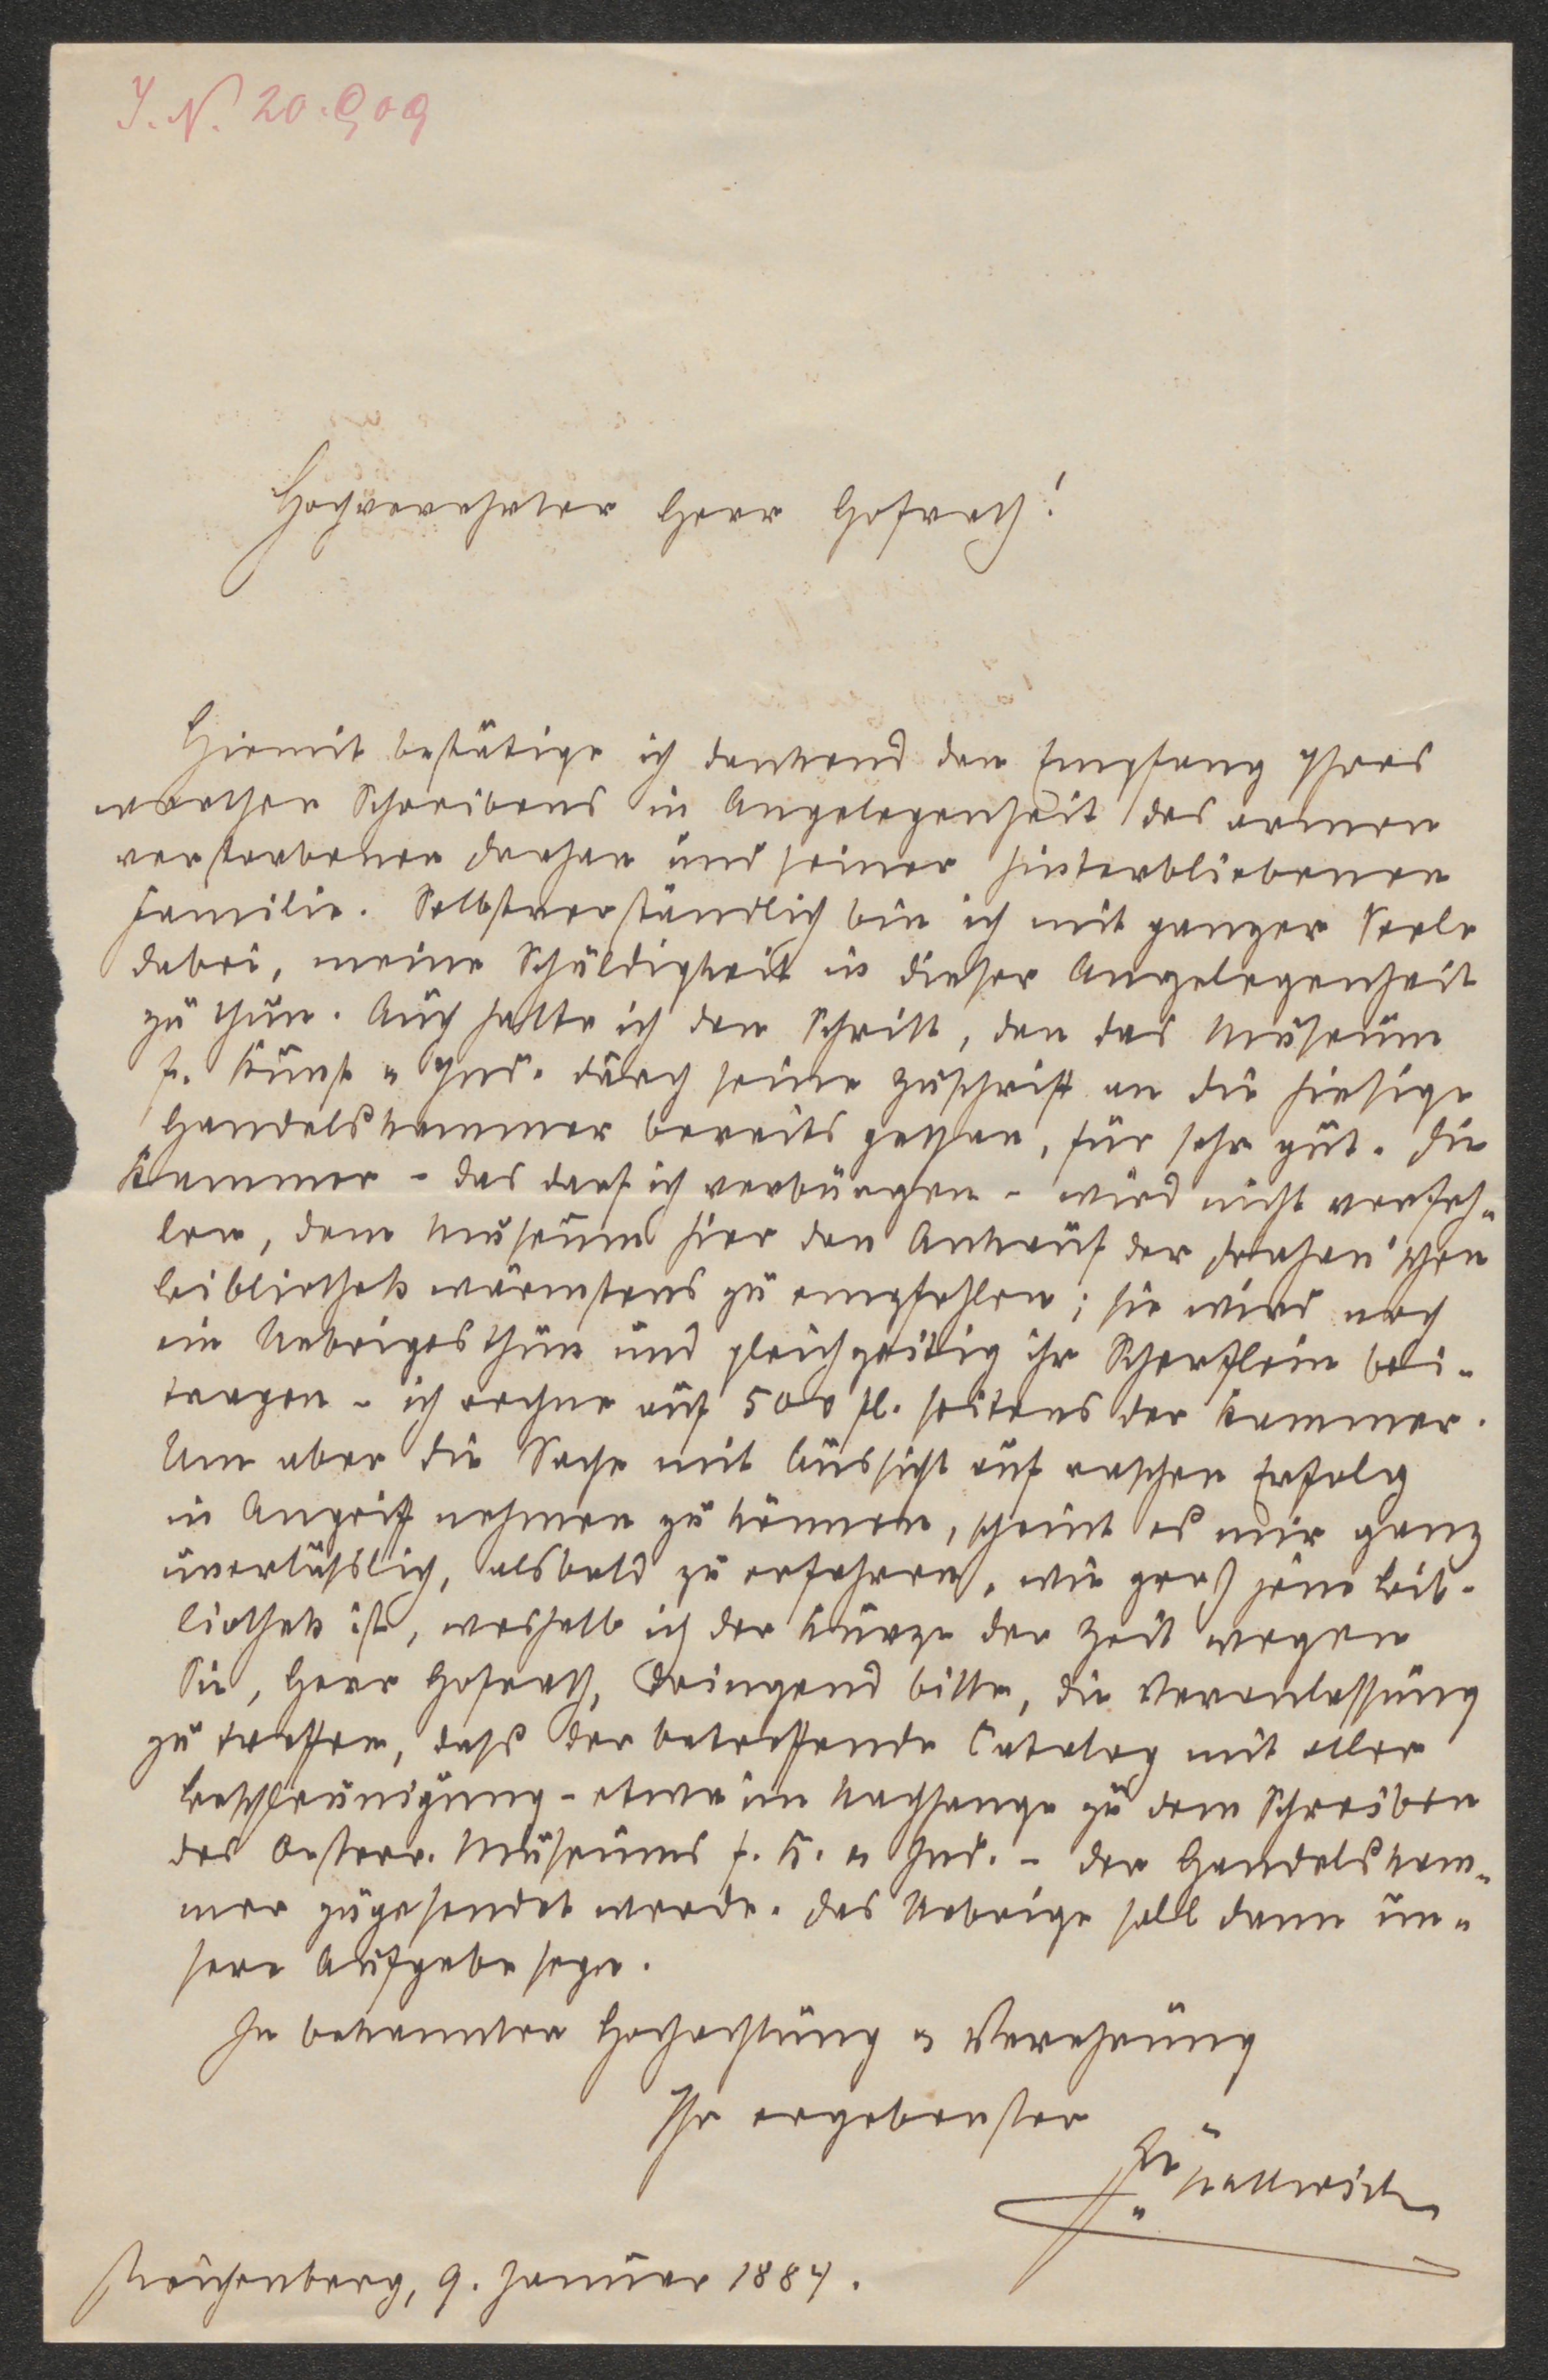 I. N. 20.909
Hochverehrter Herr Hofrath!
Hiemit bestätige ich dankend den Empfang Ihres
werthen Schreibens in Angelegenheit des armen
verstorbenen Drahan und seiner hinterbliebenen
Familie. Selbstverständlich bin ich mit ganzer Seele
dabei, meine Schuldigkeit in dieser Angelegenheit
zu thun. Auch halte ich den Schritt, den das Museum
f. Kunst u Ind. durch seine Zuschrift an die hiesige
Handelskammer bereits gethan, für sehr gut. Die
Kammer - das darf ich verbürgen - wird nicht verfeh-
len, dem Museum hier den Ankauf der Drahan'schen
Bibliothek wärmstens zu empfehlen; sie wird noch
ein Uebriges thun und gleichzeitig ihr Scherflein bei-
tragen - ich rechne auf 500 fl. seitens der Kammer.
Um aber die Sache mit Aussicht auf raschen Erfolg
in Angriff nehmen zu können, scheint es mir ganz
unerlässlich, alsbald zu erfahren, wie groß jene Bib-
liothek ist, weshalb ich der Kürze der Zeit wegen
Sie, Herr Hofrath, dringend bitte, die Veranlassung
zu treffen, dass der betreffende Catalog mit aller
Beschleunigung - etwa im Nachhange zu dem Schreiben
des Oesterr. Museums f. K. u Ind. - der Handelskam-
mer zugesendet werde. Das Uebrige soll dann un-
sere Aufgabe seyn.
In bekannter Hochachtung u Verehrung
Ihr ergebenster
Hallwich
Reichenberg, 9. Januar 1884.